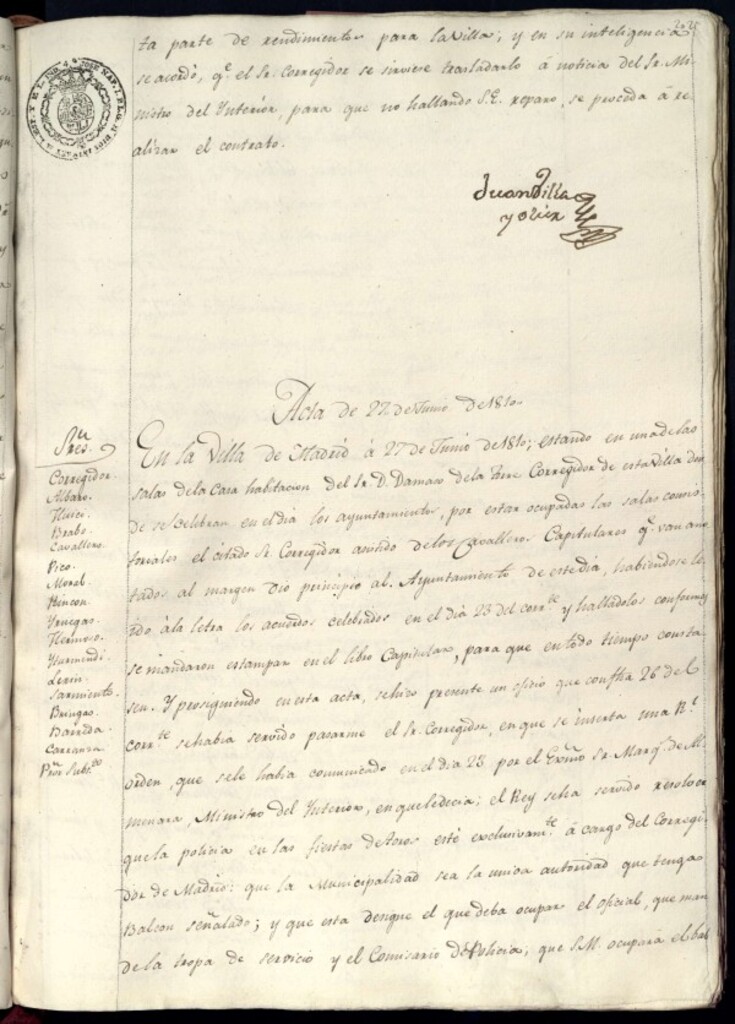 ta parte de rendimientos para la Villa; y en su inteligencia
se acordó, q.e el Sr. Corregidor se sirviese trasladarlo á noticia del Sr. Mi-
nistro del Interior, para que no hallando S.E. reparo, se proceda á re-
alizar el contrato.
Juan Villa
y Olier
Acta de 27 de Junio de 1810
Sres.
Corregidor.
Albaro.
Brabo.
Cavallero.
Pico.
Moral.
Rincon.
Yruegas.
Hermoso.
Yturmendi.
Lerin.
Sarmiento.
Bringas.
Barreda.
Carranza.
Pror Subs.to
En la Villa de Madrid á 27 de Junio de 1810; estando en una de las
salas de la Casa habitacion del Sr. D. Damaso de la Torre Corregidor de esta Villa don-
de se celebran en el dia los ayuntamientos, por estar ocupadas las salas consis-
toriales el citado Sr. Corregidor asistido de los Cavalleros Capitulares q.e van ano-
tados al margen dio principio al Ayuntamiento de este dia, habiendose le-
ido á la letra los acuerdos celebrados en el dia 23 del corr.te y halladolos conformes
se mandaron estampar en el libro Capitular, para que en todo tiempo consta-
sen. Y prosiguiendo en esta acta, se hizo presente un oficio que con fha 26 del
corr.te se habia servido pasarme el Sr. Corregidor, en que se inserta una R.l
orden, que se le habia comunicado en el dia 23 por el Exmo Sr. Marq.s de Al-
menara, Ministro del Interior, en que le decia; el Rey se ha servido resolver
que la policia en las fiestas de toros esté exclusivam.te á cargo del Corregi-
dor de Madrid: que la Municipalidad sea la unica autoridad que tenga
Balcon señalado; y que esta designe el que deba ocupar el oficial, que man-
de la tropa de servicio y el Comisario de Policia; que S.M. ocupará el bal-